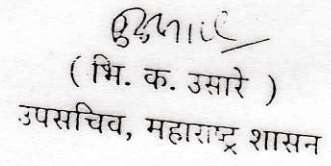 ( भि. क. उसारे )
उपसचिव, महाराष्ट्र शासन